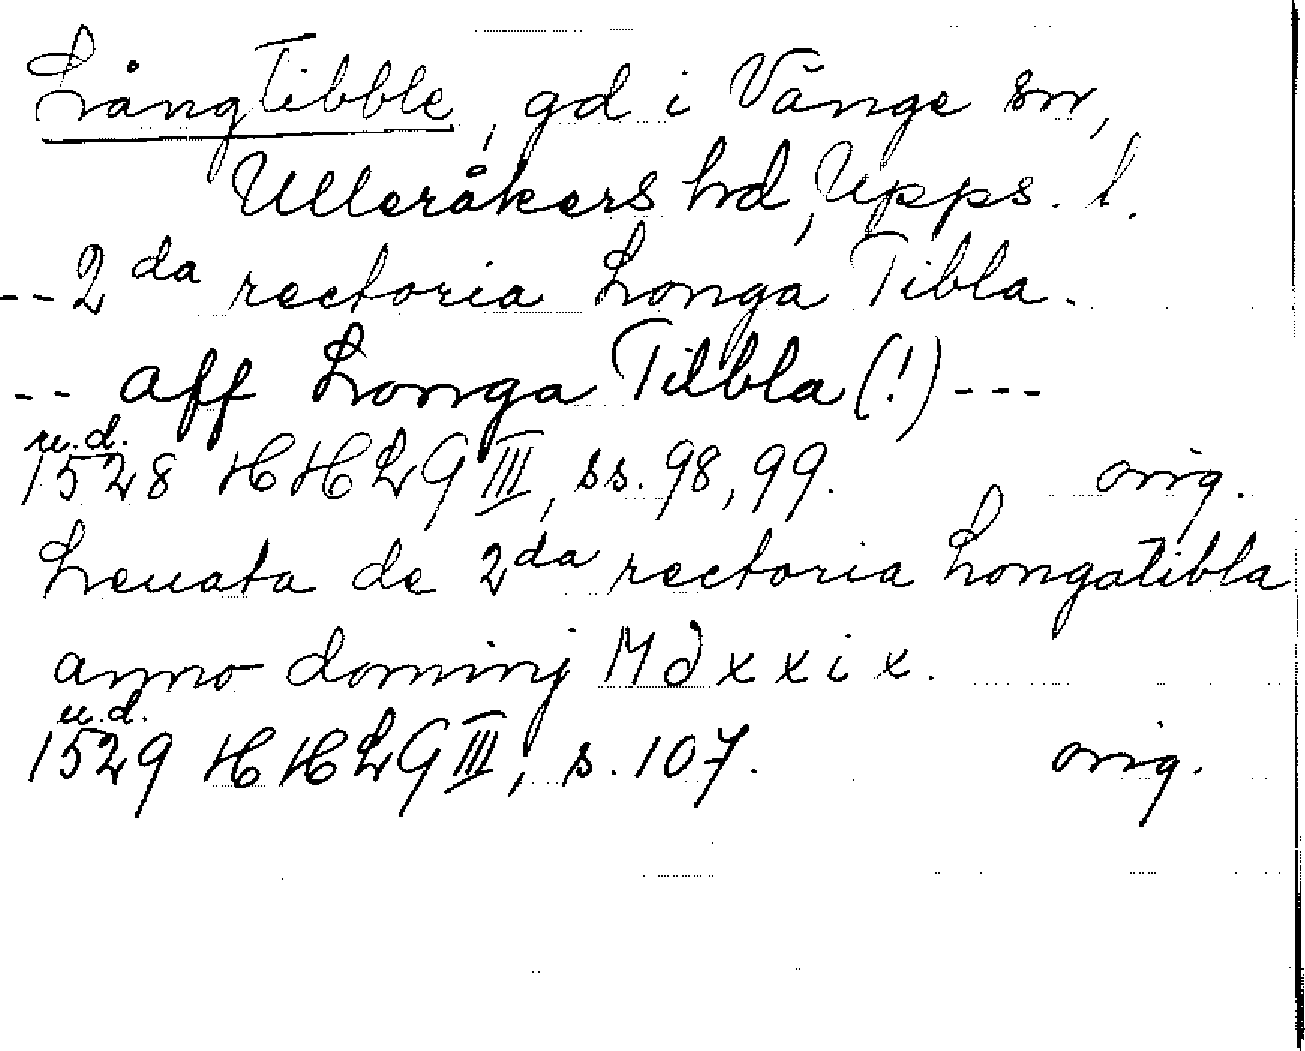 LångTibble, gd i Vänge sn,
Ulleråkers hd, Upps. l.
--2da rectoria Longa Tibla.
-- aff Longa Tilbla (!) ---
u.d.
1528 HHLG III, ss. 98, 99. orig.
Leuata de 2da rectoria Longatibla
anno dominj Mdxxix.
u.d.
1529 HHLG III, s. 107. orig.